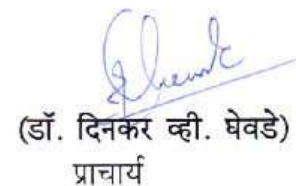 (डॉ. दिनकर व्ही. घेवडे)
प्राचार्य